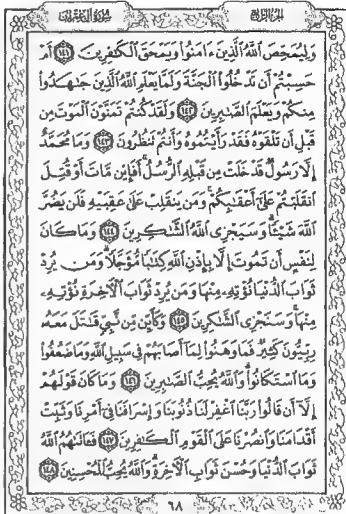 الجزء الرابع
سورة آل عمران
وَلِيُمَحِّصَ ٱللَّهُ ٱلَّذِينَ ءَامَنُوا۟ وَيَمْحَقَ ٱلْكَٰفِرِينَ ١٤١ أَمْ
حَسِبْتُمْ أَن تَدْخُلُوا۟ ٱلْجَنَّةَ وَلَمَّا يَعْلَمِ ٱللَّهُ ٱلَّذِينَ جَٰهَدُوا۟
مِنكُمْ وَيَعْلَمَ ٱلصَّٰبِرِينَ ١٤٢ وَلَقَدْ كُنتُمْ تَمَنَّوْنَ ٱلْمَوْتَ مِن
قَبْلِ أَن تَلْقَوْهُ فَقَدْ رَأَيْتُمُوهُ وَأَنتُمْ تَنظُرُونَ ١٤٣ وَمَا مُحَمَّدٌ
إِلَّا رَسُولٌ قَدْ خَلَتْ مِن قَبْلِهِ ٱلرُّسُلُ ۚ أَفَإِي۟ن مَّاتَ أَوْ قُتِلَ
ٱنقَلَبْتُمْ عَلَىٰٓ أَعْقَٰبِكُمْ ۚ وَمَن يَنقَلِبْ عَلَىٰ عَقِبَيْهِ فَلَن يَضُرَّ
ٱللَّهَ شَيْـًٔا ۗ وَسَيَجْزِى ٱللَّهُ ٱلشَّٰكِرِينَ ١٤٤ وَمَا كَانَ
لِنَفْسٍ أَن تَمُوتَ إِلَّا بِإِذْنِ ٱللَّهِ كِتَٰبًا مُّؤَجَّلًا ۗ وَمَن يُرِدْ
ثَوَابَ ٱلدُّنْيَا نُؤْتِهِۦ مِنْهَا وَمَن يُرِدْ ثَوَابَ ٱلْـَٔاخِرَةِ نُؤْتِهِۦ
مِنْهَا ۚ وَسَنَجْزِى ٱلشَّٰكِرِينَ ١٤٥ وَكَأَيِّن مِّن نَّبِىٍّ قَٰتَلَ مَعَهُۥ
رِبِّيُّونَ كَثِيرٌ فَمَا وَهَنُوا۟ لِمَآ أَصَابَهُمْ فِى سَبِيلِ ٱللَّهِ وَمَا ضَعُفُوا۟
وَمَا ٱسْتَكَانُوا۟ ۗ وَٱللَّهُ يُحِبُّ ٱلصَّٰبِرِينَ ١٤٦ وَمَا كَانَ قَوْلَهُمْ
إِلَّآ أَن قَالُوا۟ رَبَّنَا ٱغْفِرْ لَنَا ذُنُوبَنَا وَإِسْرَافَنَا فِىٓ أَمْرِنَا وَثَبِّتْ
أَقْدَامَنَا وَٱنصُرْنَا عَلَى ٱلْقَوْمِ ٱلْكَٰفِرِينَ ١٤٧ فَـَٔاتَىٰهُمُ ٱللَّهُ
ثَوَابَ ٱلدُّنْيَا وَحُسْنَ ثَوَابِ ٱلْـَٔاخِرَةِ ۗ وَٱللَّهُ يُحِبُّ ٱلْمُحْسِنِينَ ١٤٨
٦٨